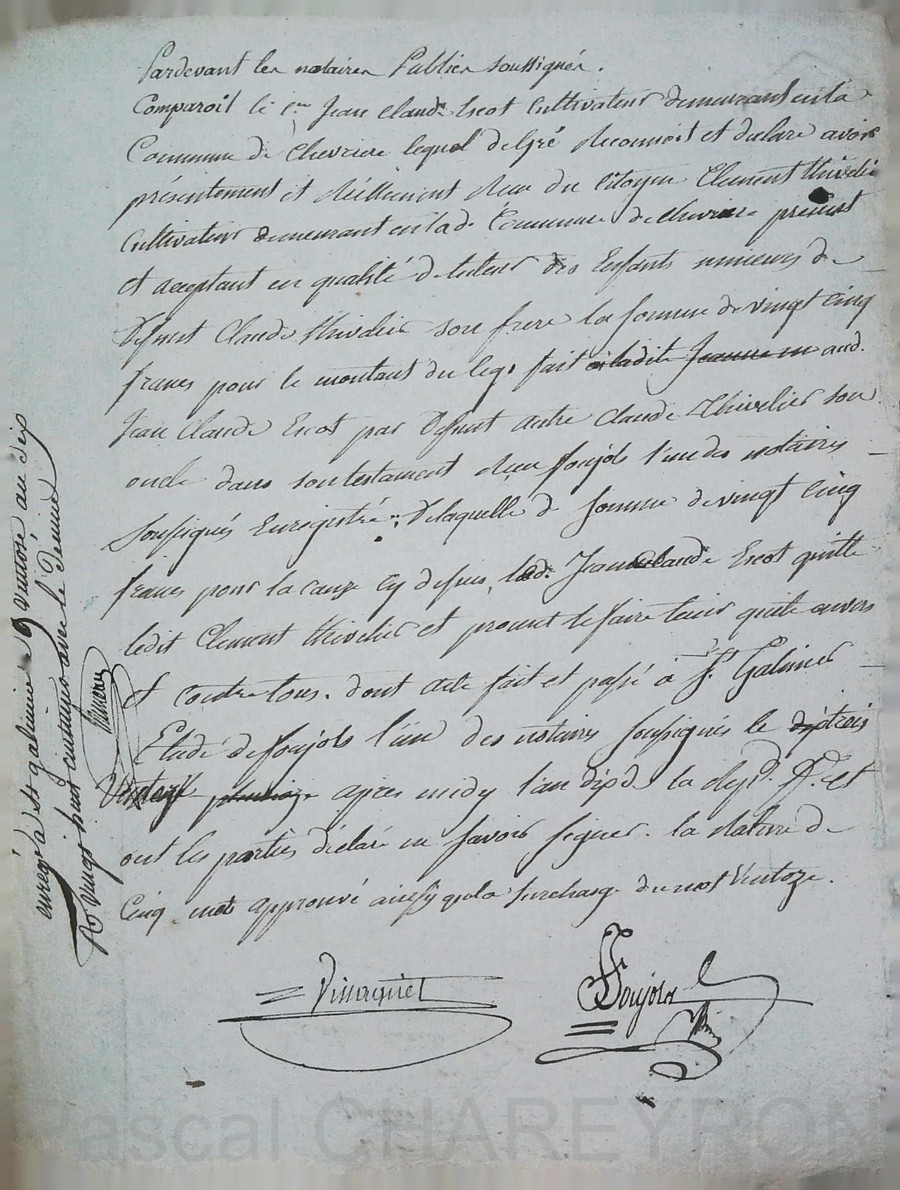 Pardevant les notaires Publics soussignés.
Comparoit le c.en Jean Claude Escot Cultivateur demeurant en la
Commune de Chevriere lequel de Gré Reconnoit et declare avoir
présentement et Réellement Recu du Citoyen Clement thivelie
Cultivateur demeurant en lad. Commune de chevriere présent
et acceptant en qualité de tuteur des Enfants mineurs de
Defunt Claude thivelier son frere la somme de vingt cinq
francs pour le montant du legs fait a ladite Jeanne m aud.
Jean Claude Escot par Defunt autre Claude Thivelier son
oncle dans son testament Recu foujols l'un des notaires
Soussignés Enregistré ; De laquelle d. somme de vingt cinq
francs pour la cause cy dessus, led. Jean claude Escot quitte
ledit Clement thivelier et promet le faire tenir quite envers
et contre tous. dont acte fait et passé à S.t Galmier
Etude de foujols l'un des notaires soussignés le trois
Ventoze apres midy l'an dix de la Rep. f.se et
ont les parties déclaré ne savoir signer. la Rature de
Cinq mot approuvé ainsy que la surcharge du mot Ventoze.
Vinaguet
Foujols
enregé à st galmier 9 ventose an dix
R vingt huit centimes avec le deuxime
Pascal CHAREYRON